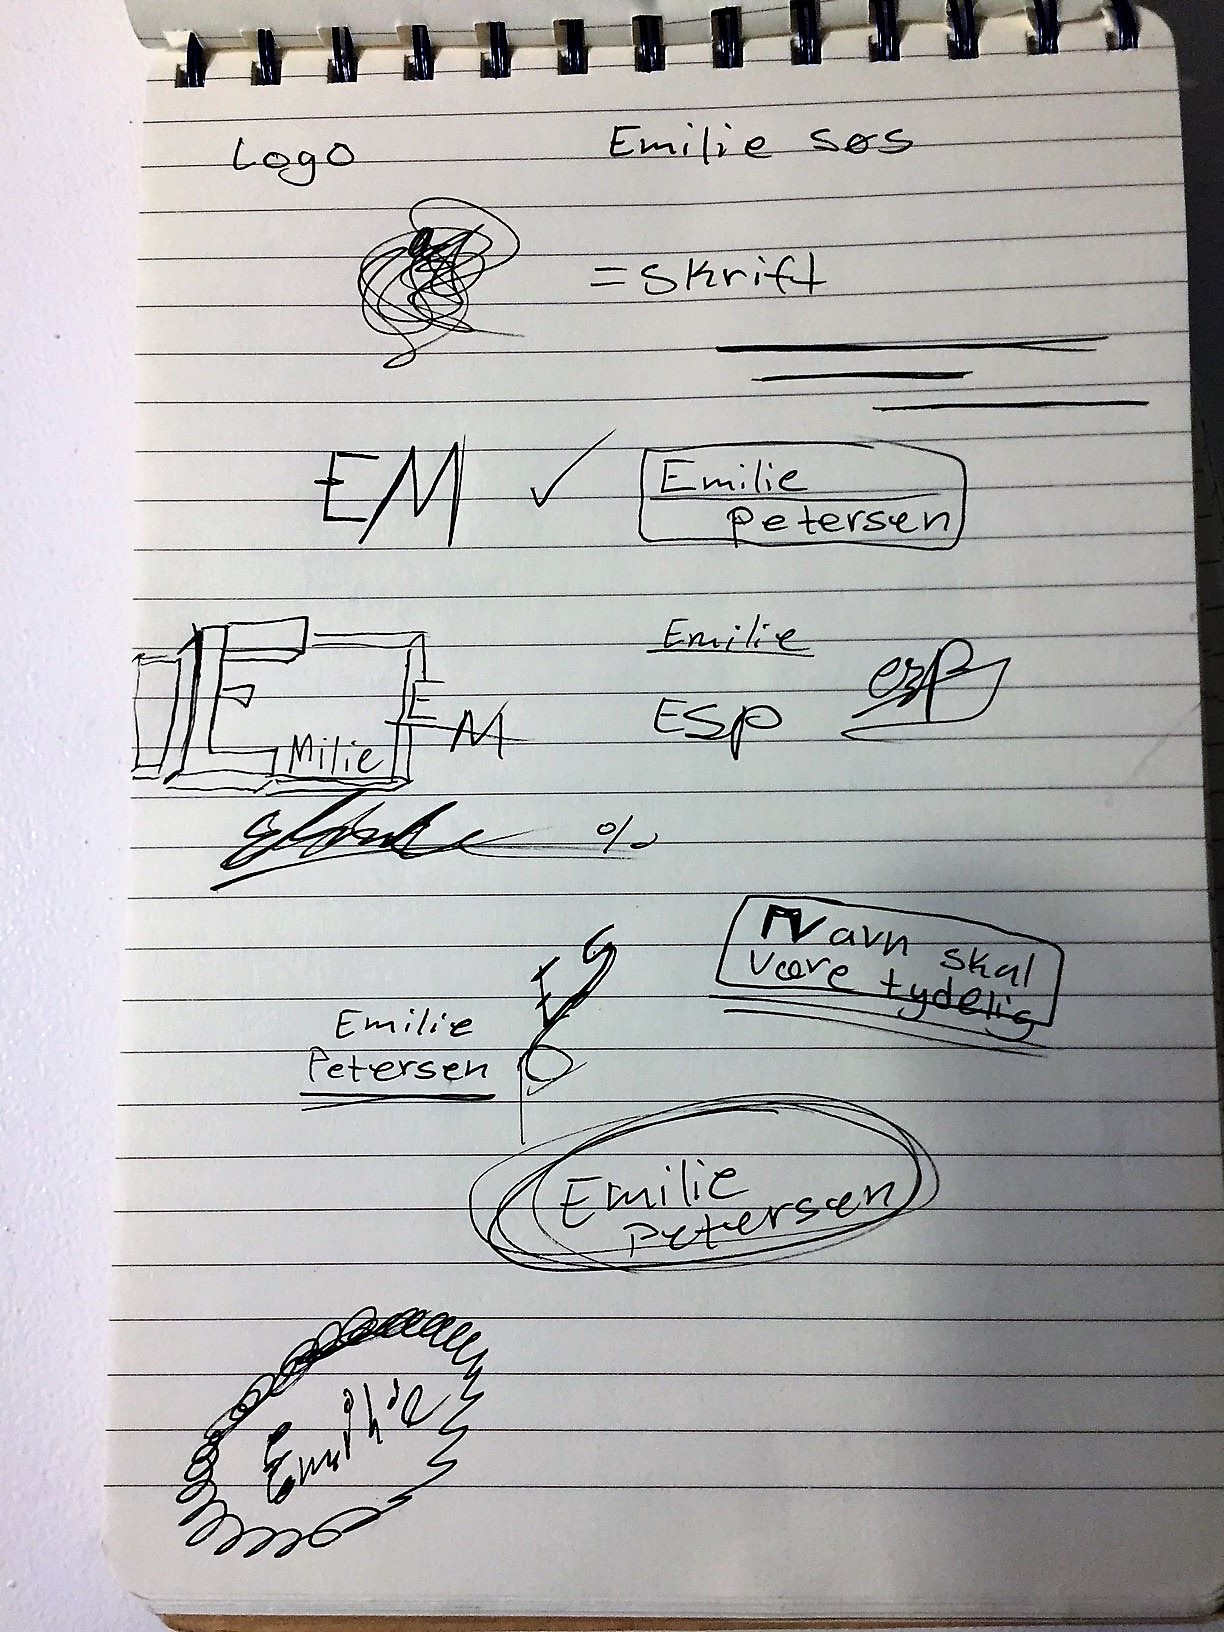 Logo
Emilie søs
= Skrift
EM
Emilie
Petersen
E
Milie
E
M
Emilie
ESP
esp
%
Navn skal
være tydelig
E S
P
Emilie
Petersen
Emilie
Petersen
Emilie